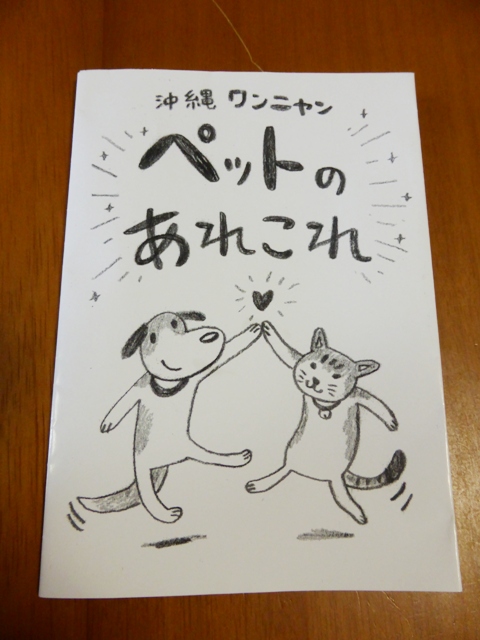 沖縄 ワンニャン
ペットの
あれこれ